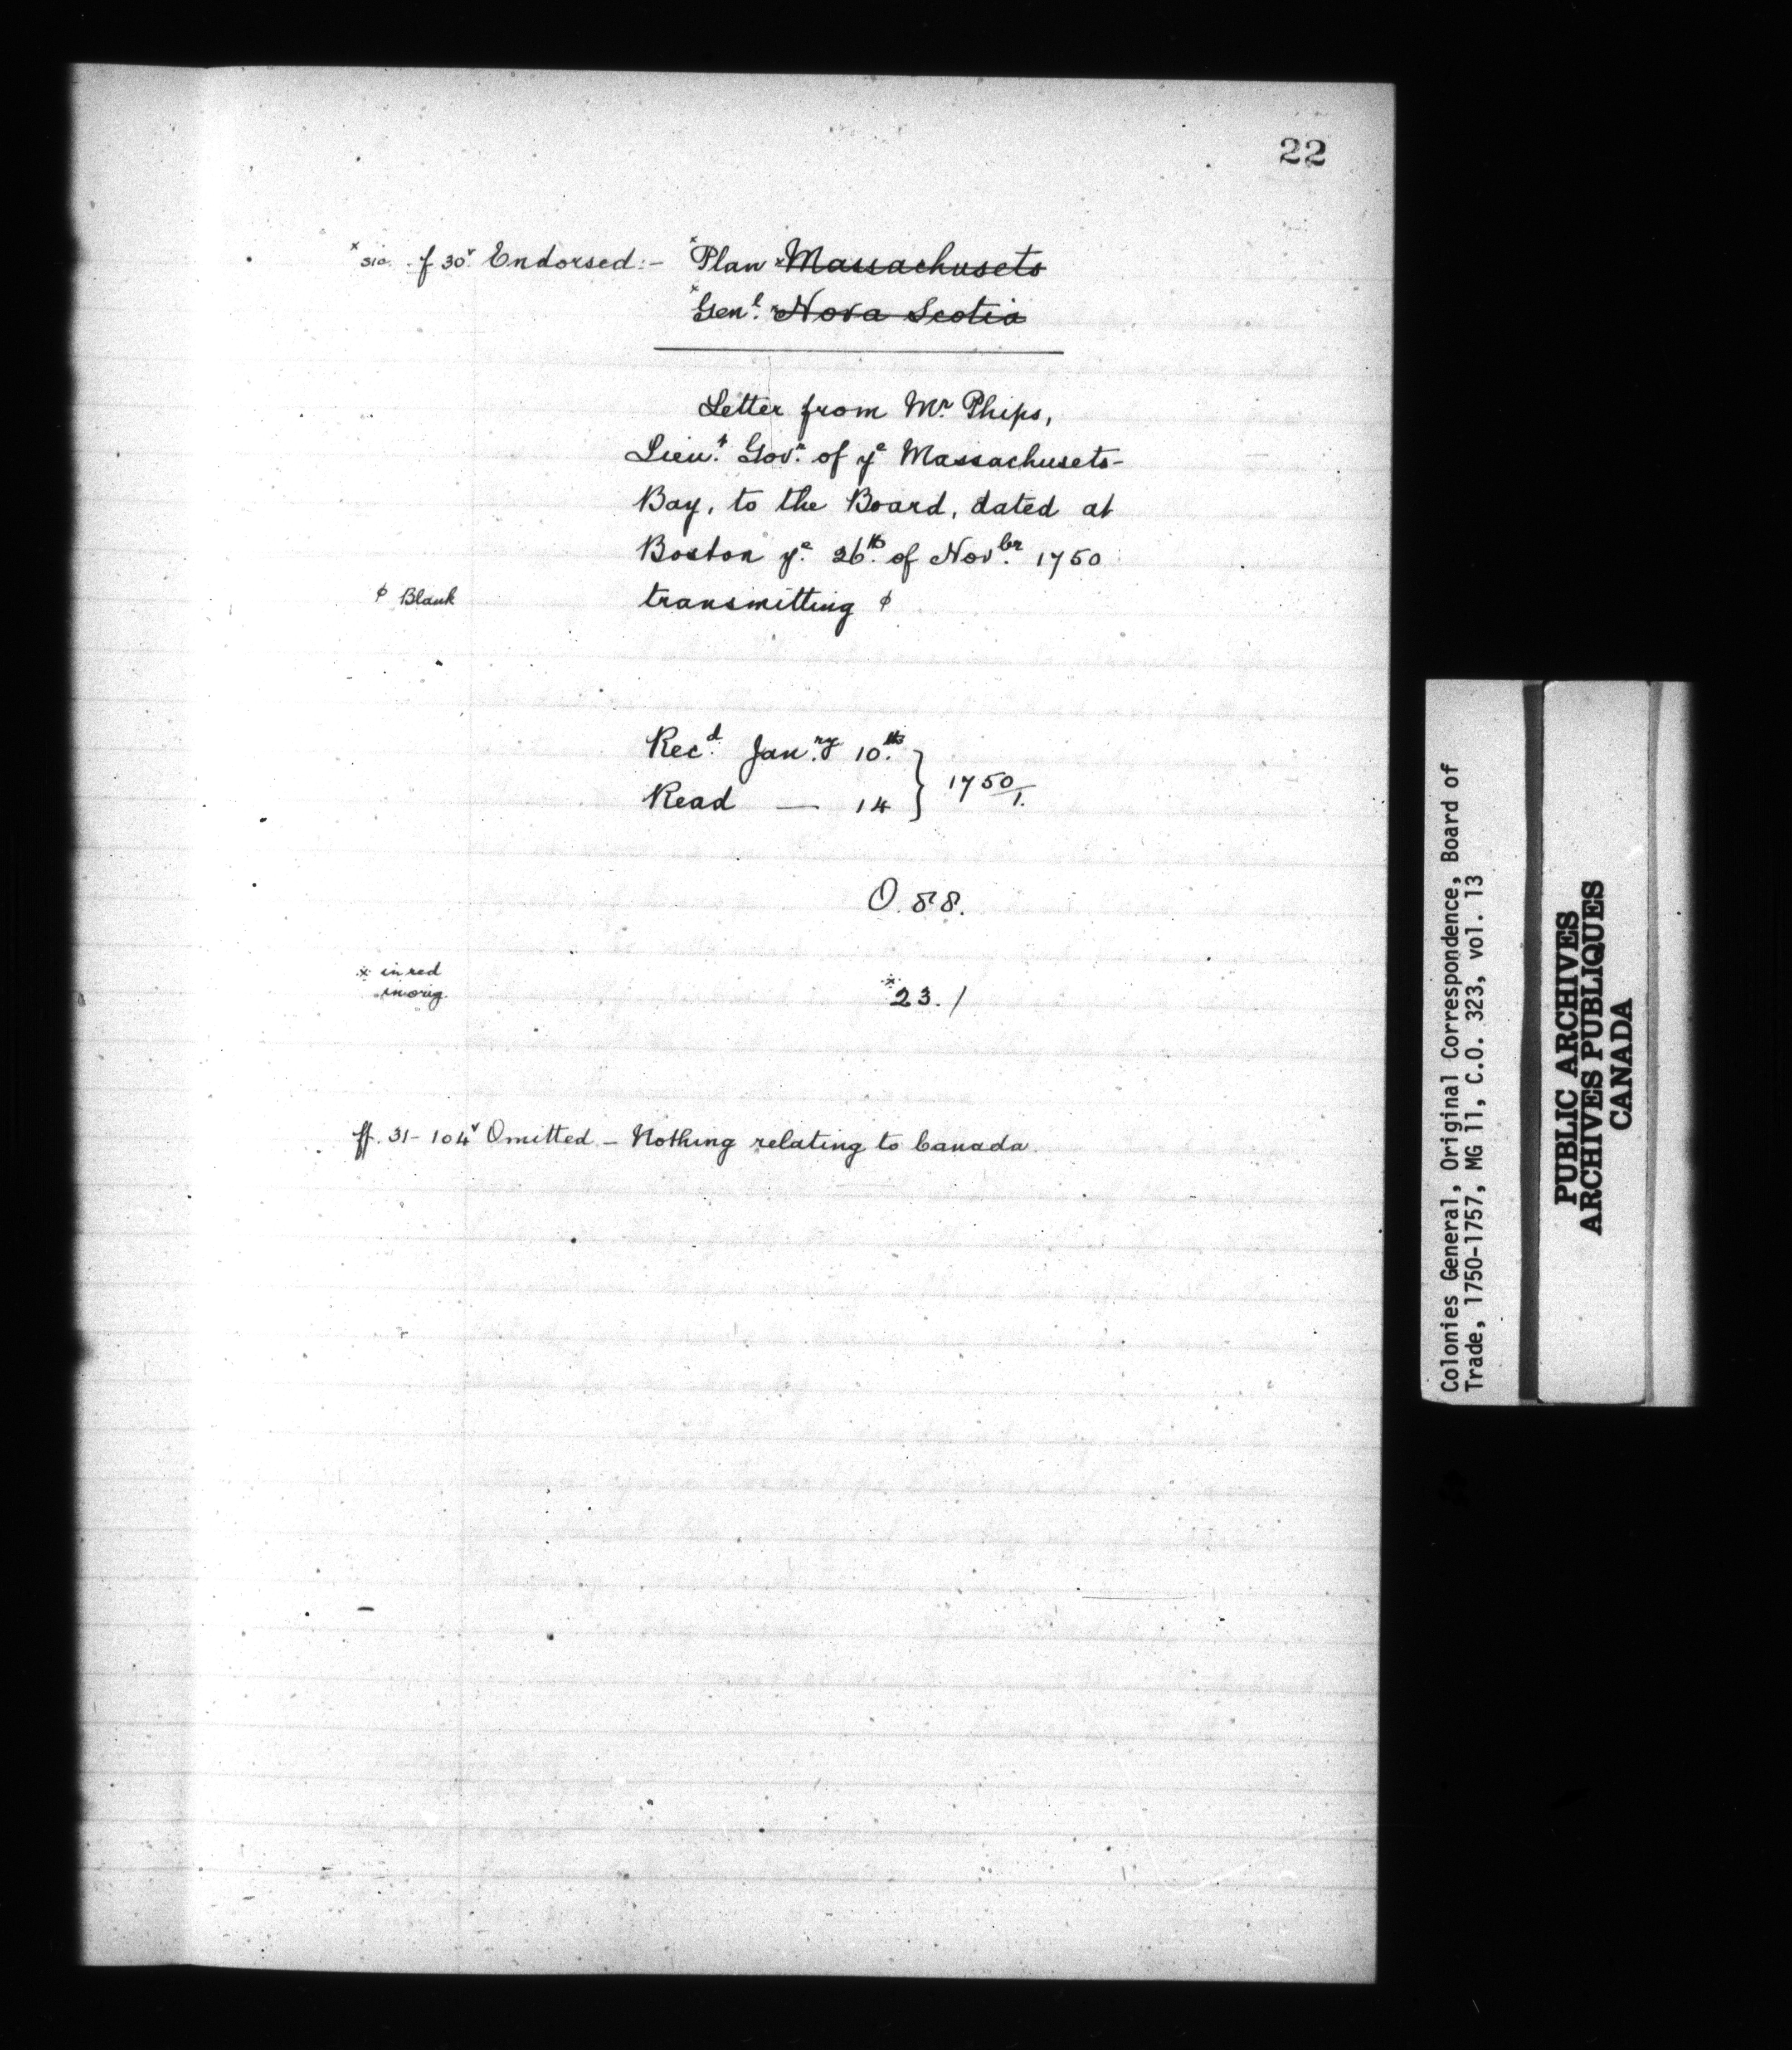 22
x sic. f 30v. Endorsed:- xPlan xMassachusets
xGenl. xNova Scotia
Letter from Mr. Phips,
Lieut. Govr. of ye Massachusets-
Bay, to the Board, dated at
Boston ye. 26th. of Novber. 1750
φ Blank transmitting φ
Recd. Janry. 10th.
Read — 14 } 1750/1.
O. 88.
x in red
in orig.
x23. /
ff. 31-104v Omitted - Nothing relating to Canada.
Colonies General, Original Correspondence, Board of
Trade, 1750-1757, MG 11, C.O. 323, vol. 13
PUBLIC ARCHIVES
ARCHIVES PUBLIQUES
CANADA